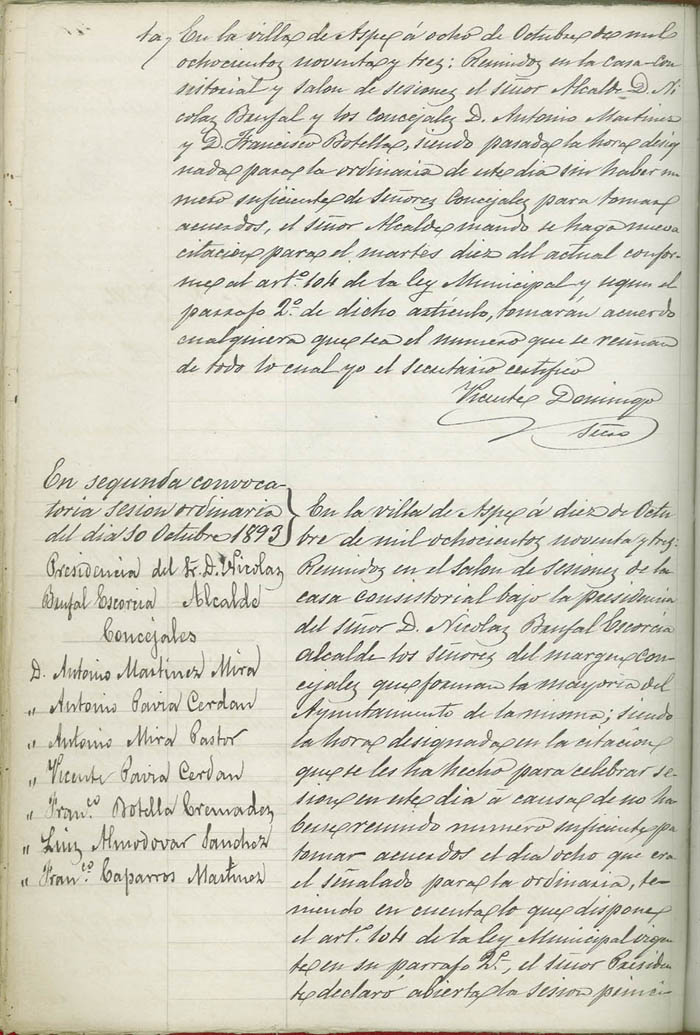 ta, En la villa de Aspe á ocho de Octubre de mil
ochocientos noventa y tres: Reunidos en la casa con
sistorial y salon de sesiones el señor Alcalde D. Ni
colas Bensal y los Concejales D. Antonio Martinez
y D. Francisco Botella, siendo pasada la hora desig
nada para la ordinaria de este dia sin haber nu
mero suficiente de Señores Concejales para tomar
acuerdos, el señor Alcalde mando se haga nueva
citacion para el martes diez del actual confor-
me al art.º 104 de la ley Municipal y segun el
parrafo 2.º de dicho articulo, tomarán acuerdo
cualquiera que sea el numero que se reunan
de todo lo cual yo el secretario certifico
Vicente Domingo
Srio
En segunda convoca-
toria sesion ordinaria
del dia 10 Octubre 1893
Presidencia del Sr. D. Nicolas
Escorcia Alcalde
Concejales
D. Antonio Martinez Mira
" Antonio Pavia Cerdan
" Antonio Mira Pastor
" Vicente Pavia Cerdan
" Fran.co Botella Cremadez
" Luiz Almodovar Sanchez
" Fran.co Caparros Martinez
En la villa de Aspe á diez de Octu
bre de mil ochocientos noventa y tres:
Reunidos en el Salon de Sesiones de la
casa consistorial bajo la presidencia
del señor D. Nicolas Escorcia
alcalde los señores del margen con-
cejales que forman la mayoria del
Ayuntamiento de la misma; siendo
la hora designada en la citacion
que se les ha hecho para celebrar se-
sion en este dia á causa de no ha
berse reunido numero suficiente pa
tomar acuerdos el dia ocho que era
el señalado para la ordinaria, te-
niendo en cuenta lo que dispone
el art.º 104 de la ley Municipal vigen
te en su parrafo 2.º, el señor Presiden
te declaro abierta la sesion